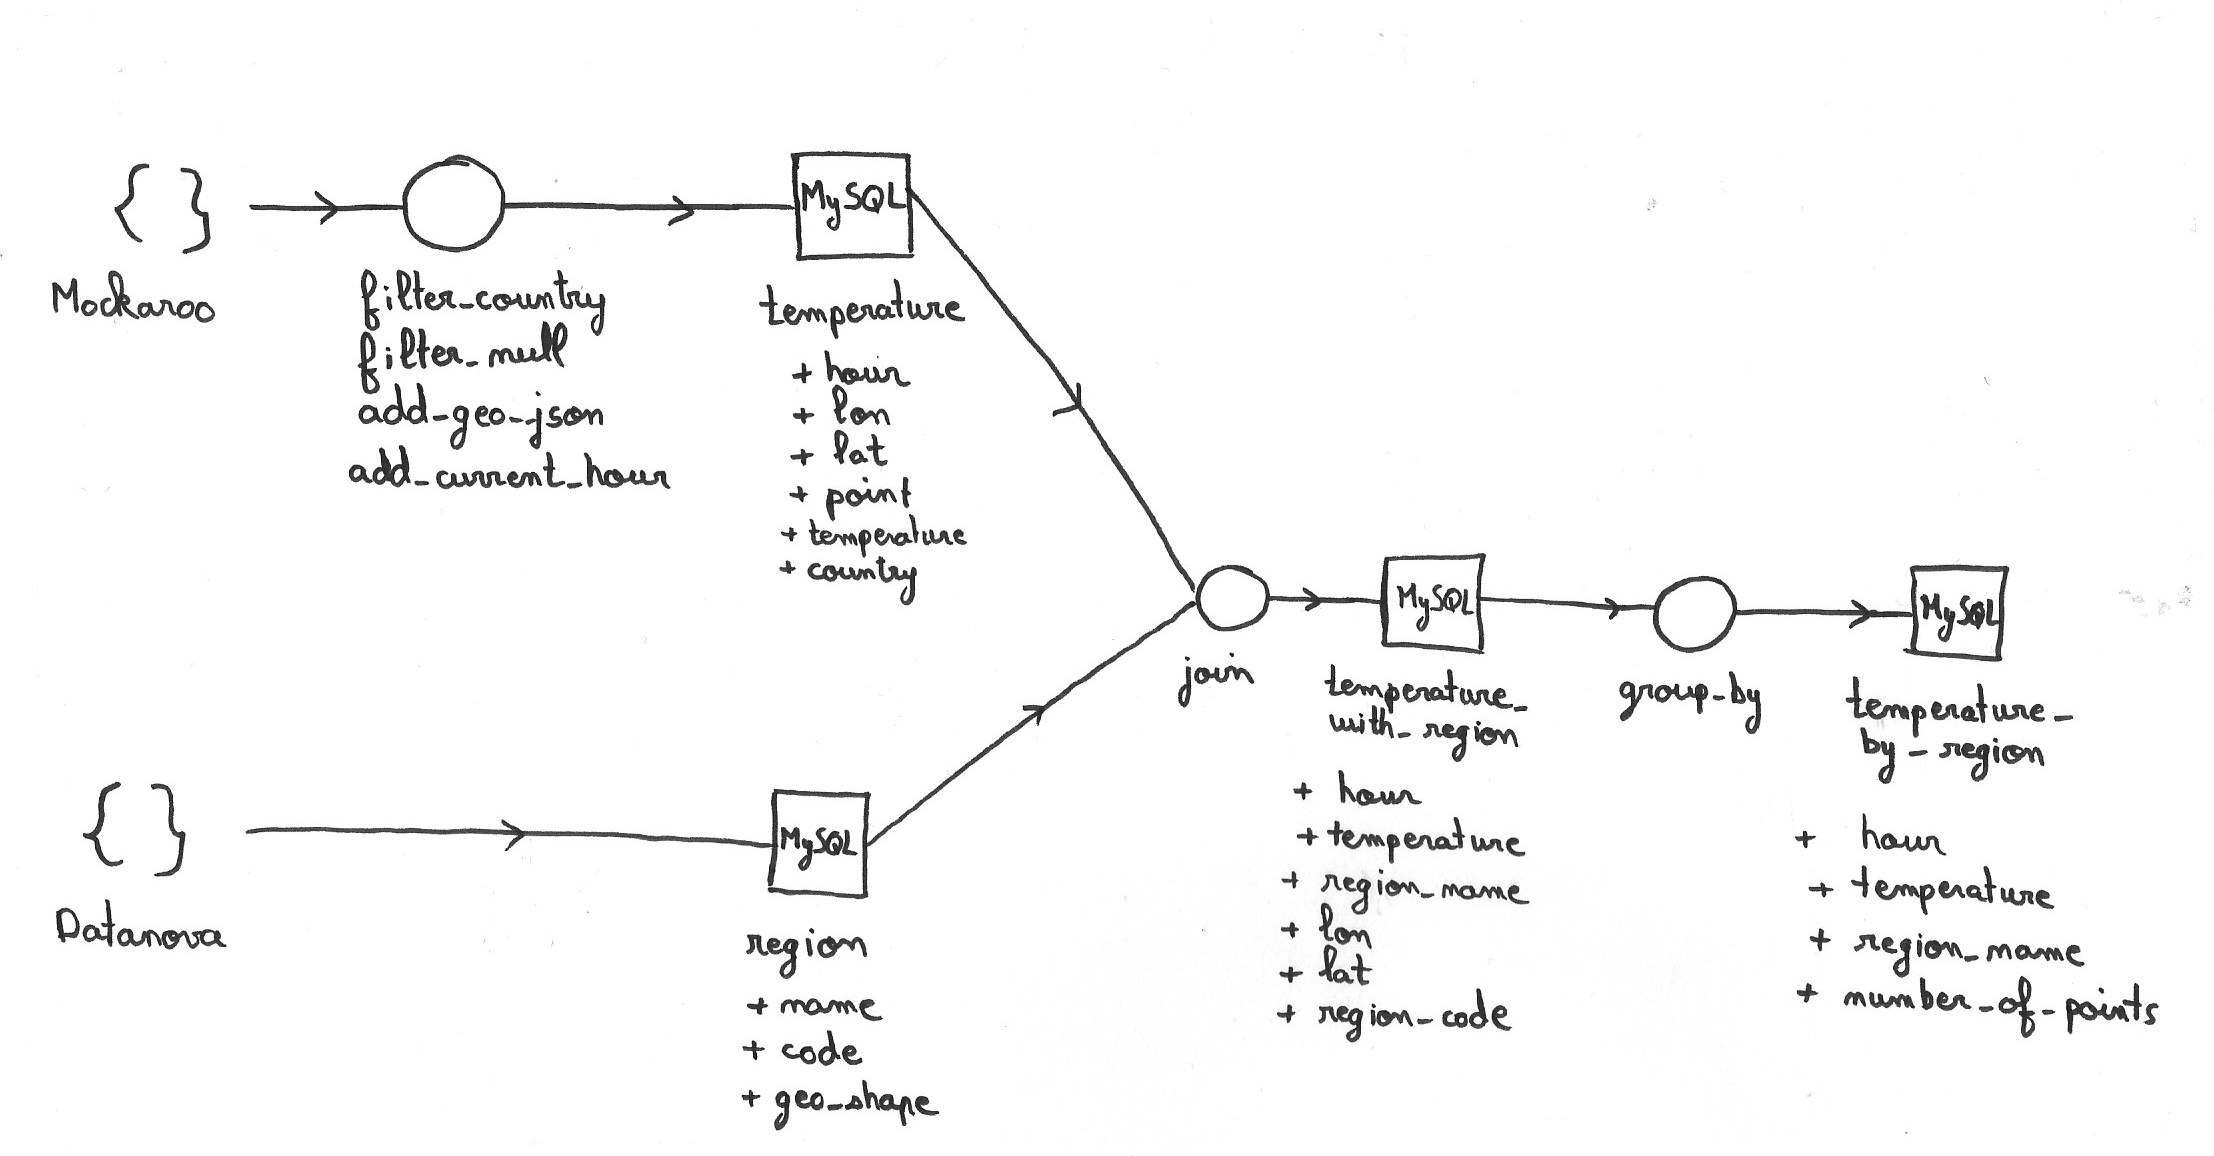 { }
Mockaroo
filter_country
filter_null
add_geo_json
add_current_hour
MySQL
temperature
+ hour
+ lon
+ lat
+ point
+ temperature
+ country
{ }
Datanova
MySQL
region
+ name
+ code
+ geo_shape
join
MySQL
temperature_
with_region
+ hour
+ temperature
+ region_name
+ lon
+ lat
+ region_code
group_by
MySQL
temperature_
by_region
+ hour
+ temperature
+ region_name
+ number_of_points